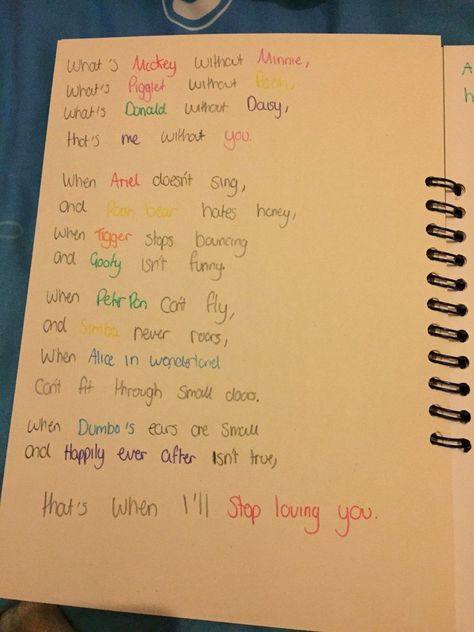 What's Mickey without Minnie,
What's Pigglet without Pooh,
What's Donald without Daisy,
that's me without you.
When Ariel doesn't sing,
and Pooh bear hates honey,
When Tigger stops bouncing
and Goofy isn't funny.
When Peter Pan can't fly,
and Simba never roars,
When Alice in wonderland
Can't fit through small doors.
When Dumbo's ears are small
and Happily ever after isn't true,
that's when I'll Stop loving you.
A
h